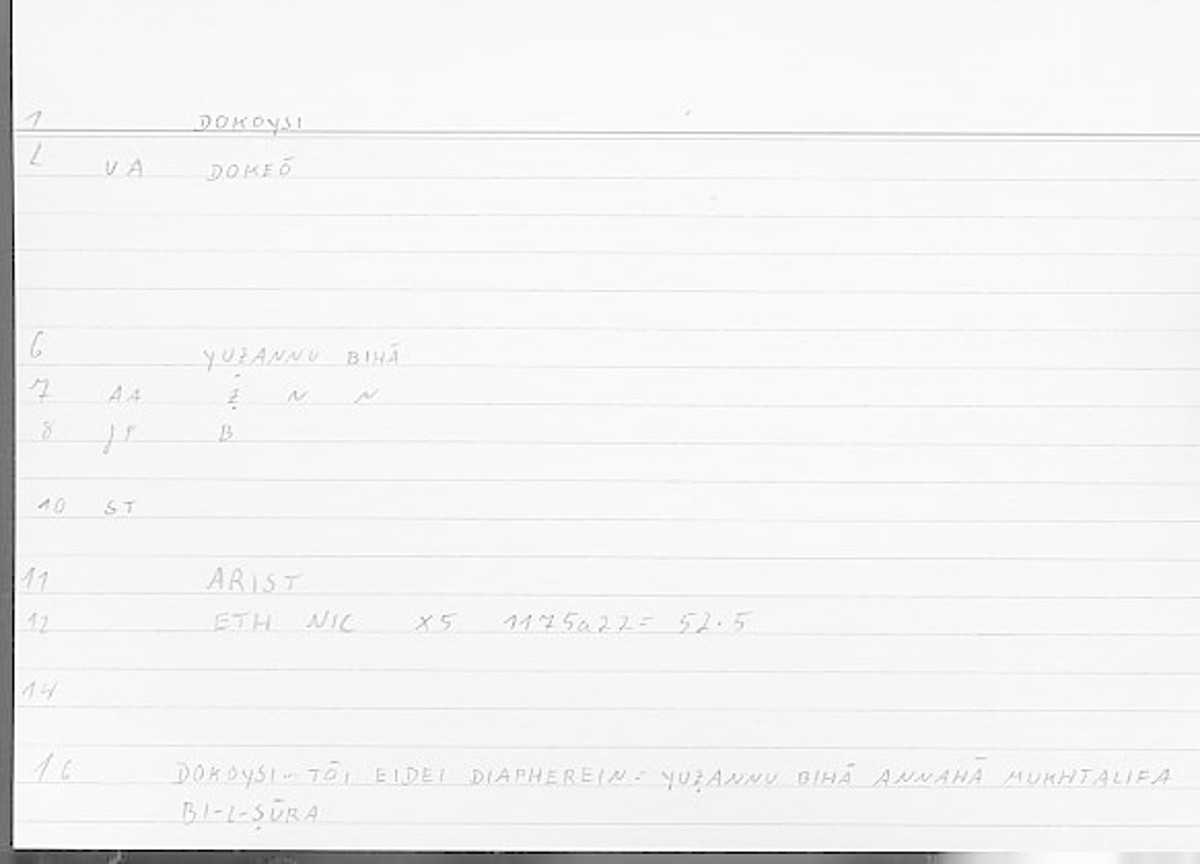 1 DOKOYSI
2 VA DOKEŌ
6 YUẒANNU BIHĀ
7 AA Ẓ N N
8 JP B
10 ST
11 ARIST
12 ETH NIC X5 1175a22= 52.5
14
16 DOKOYSI.. TŌI EIDEI DIAPHEREIN = YUẒANNU BIHĀ ANNAHĀ MUKHTALIFA
BI-L-ṢŪRA